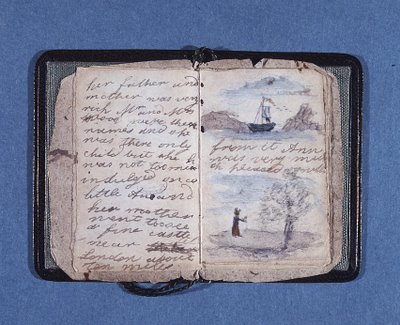 her father and
mother was very
rich Mr and Mrs
Wood were there
names and she
was there only
child but she
was not too much
indulged once
little Ane and
her mother
went to see
a fine castle
near
London about
ten miles
from it Ane
was very much
pleased with